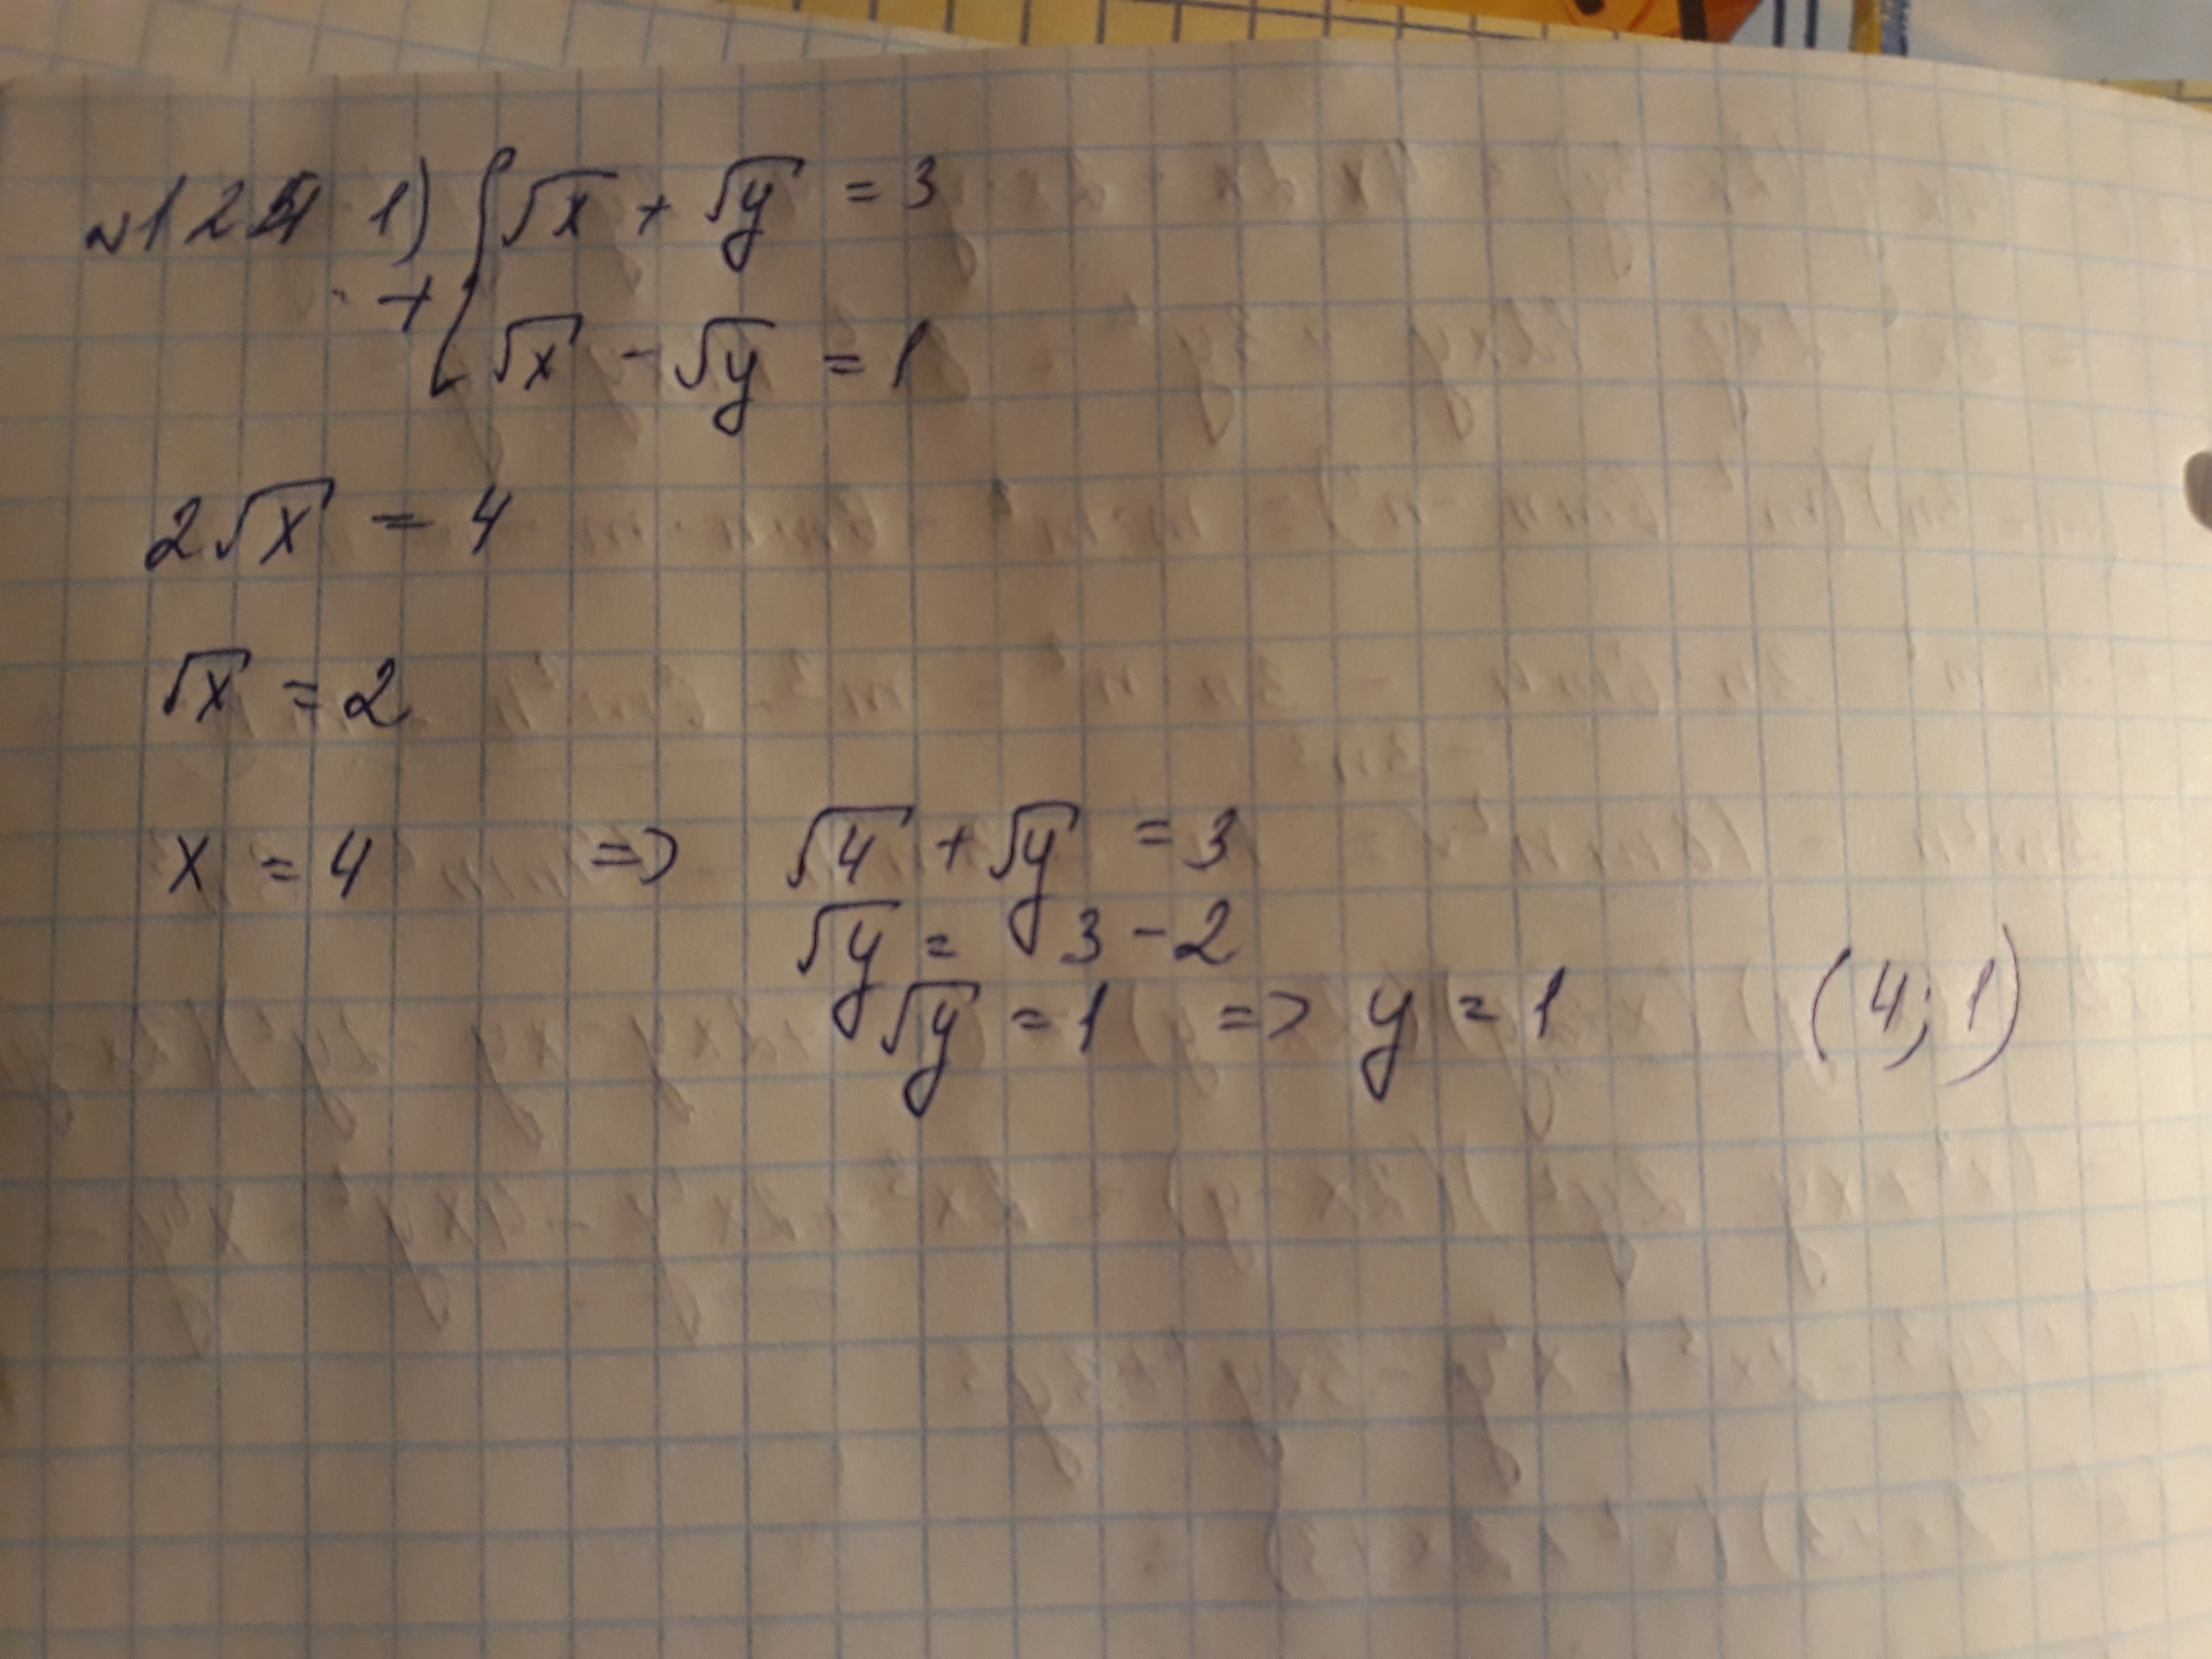 1) { √x + √y = 3
+ { √x - √y = 1
2√x = 4
√x = 2
x = 4 => √4 + √y = 3
√y = 3 - 2
√y = 1 => y = 1 (4; 1)